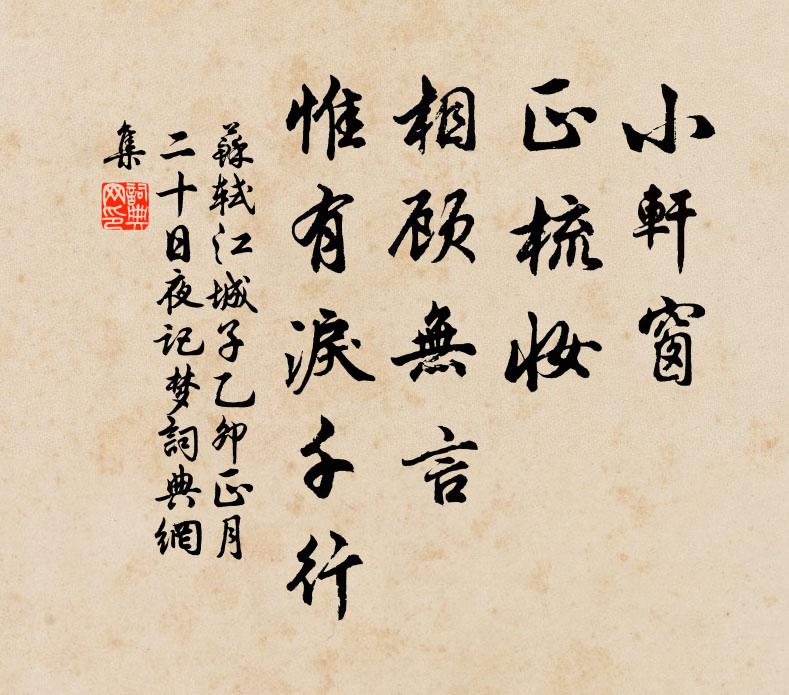 小軒窗
正梳妝
相顾無言
惟有淚千行
蘇軾江城子乙卯正月
二十日夜记梦詞典網
集
詞典
网印